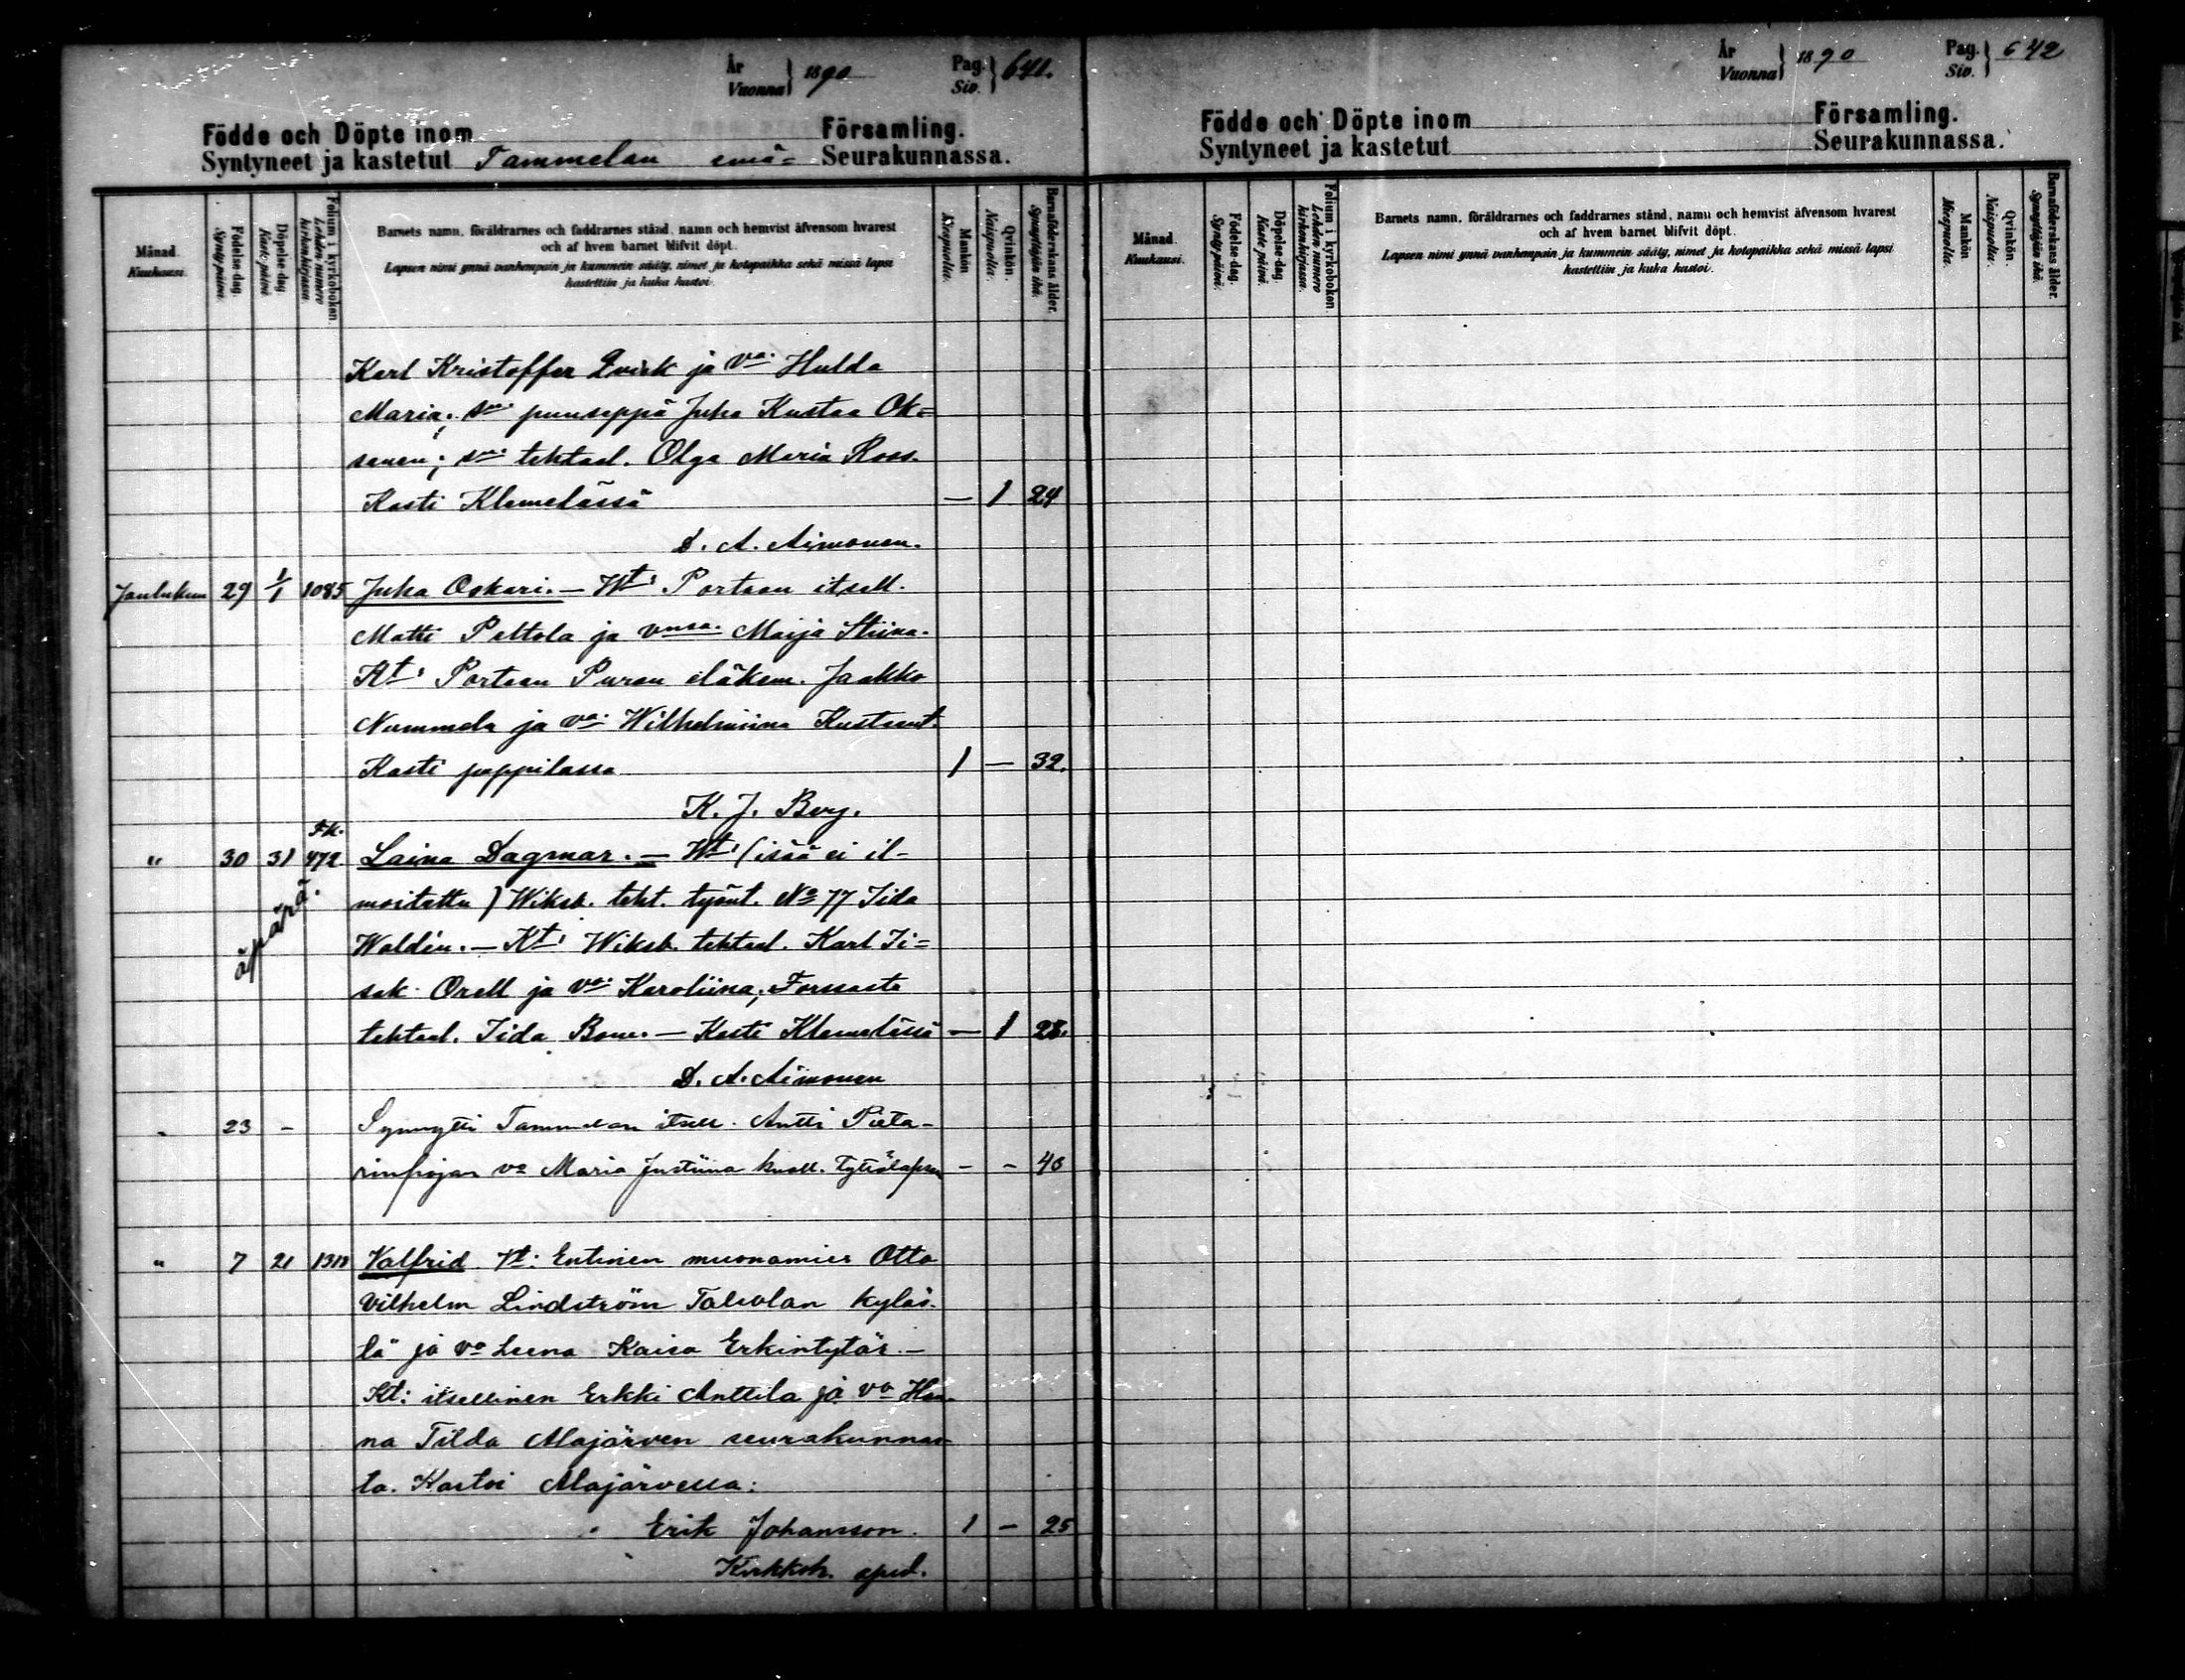 År Vuonna } 1890 Pag. Siv. } 641.
Födde och Döpte inom Församling.
Syntyneet ja kastetut Tammelan emä= Seurakunnassa.
Månad. Kuukausi.
Födelse-dag. Syntypäivä.
Döpelse-dag. Kastepäivä.
Folium i kyrkoboken. Lehden numero kirkonkirjassa.
Barnets namn, föräldrarnes och faddrarnes stånd, namn och hemvist äfvensom hvarest
och af hvem barnet blifvit döpt.
Lapsen nimi ynnä vanhempain ja kummein sääty, nimet ja kotopaikka sekä missä lapsi
kastettiin ja kuka kastoi.
Mankön Miespuolia.
Qvinkön. Naispuolia.
Barnaföderskans ålder. Synnyttäjän ikä.
Karl Kristoffer Qvick ja va. Hulda
Maria; puuseppä Juha Kustaa Ok=
sanen; tehtaal. Olga Maria Roos.
Kasti Klemelässä — 1 24
D. A. Aimonen.
Joulukuu 29 1/1 1085 Juha Oskari. — Wt: Portaan itsell.
Matti Peltola ja vmsa. Maija Stiina.
Kt: Portaan Puran eläkem. Jaakko
Nummela ja va. Wilhelmiina Kustaant.
Kasti pappilassa 1 — 32.
K. J. Berg.
" 30 31 F.K. 472 Laina Dagmar. — Wt: (isää ei il-
äpärä.
moitettu) Wiksb. teht. työnt. No 77 Iida
Waldén. — Kt: Wiksb. tehtaal. Karl Ii=
sak Orell ja va. Karoliina; Forssasta
tehtaal. Iida Bom. — Kasti Klemelässä — 1 28.
D. A. Aimonen
" 23 - Synnytti Tammelan itsell. Antti Pieta-
rinpojan va Maria Justiina kuoll. tyttölapsen - - 40
" 7 21 1313 Valfrid Vt: Entinen muonamies Otto
Vilhelm Lindström Talsolan kyläs-
tä ja va Leena Kaisa Erkintytär. —
Kt: itsellinen Erkki Anttila ja va Han-
na Tilda Alajärven seurakunnas-
ta. Kastoi Alajärvessa:
Erik Johansson. 1 — 25
Kirkkoh. apul.
År Vuonna } 1890 Pag. Siv. } 642
Födde och Döpte inom Församling.
Syntyneet ja kastetut Seurakunnassa.
Månad. Kuukausi.
Födelse-dag. Syntypäivä.
Döpelse-dag. Kastepäivä.
Folium i kyrkoboken. Lehden numero kirkonkirjassa.
Barnets namn, föräldrarnes och faddrarnes stånd, namn och hemvist äfvensom hvarest
och af hvem barnet blifvit döpt.
Lapsen nimi ynnä vanhempain ja kummein sääty, nimet ja kotopaikka sekä missä lapsi
kastettiin ja kuka kastoi.
Mankön Miespuolia.
Qvinkön. Naispuolia.
Barnaföderskans ålder. Synnyttäjän ikä.